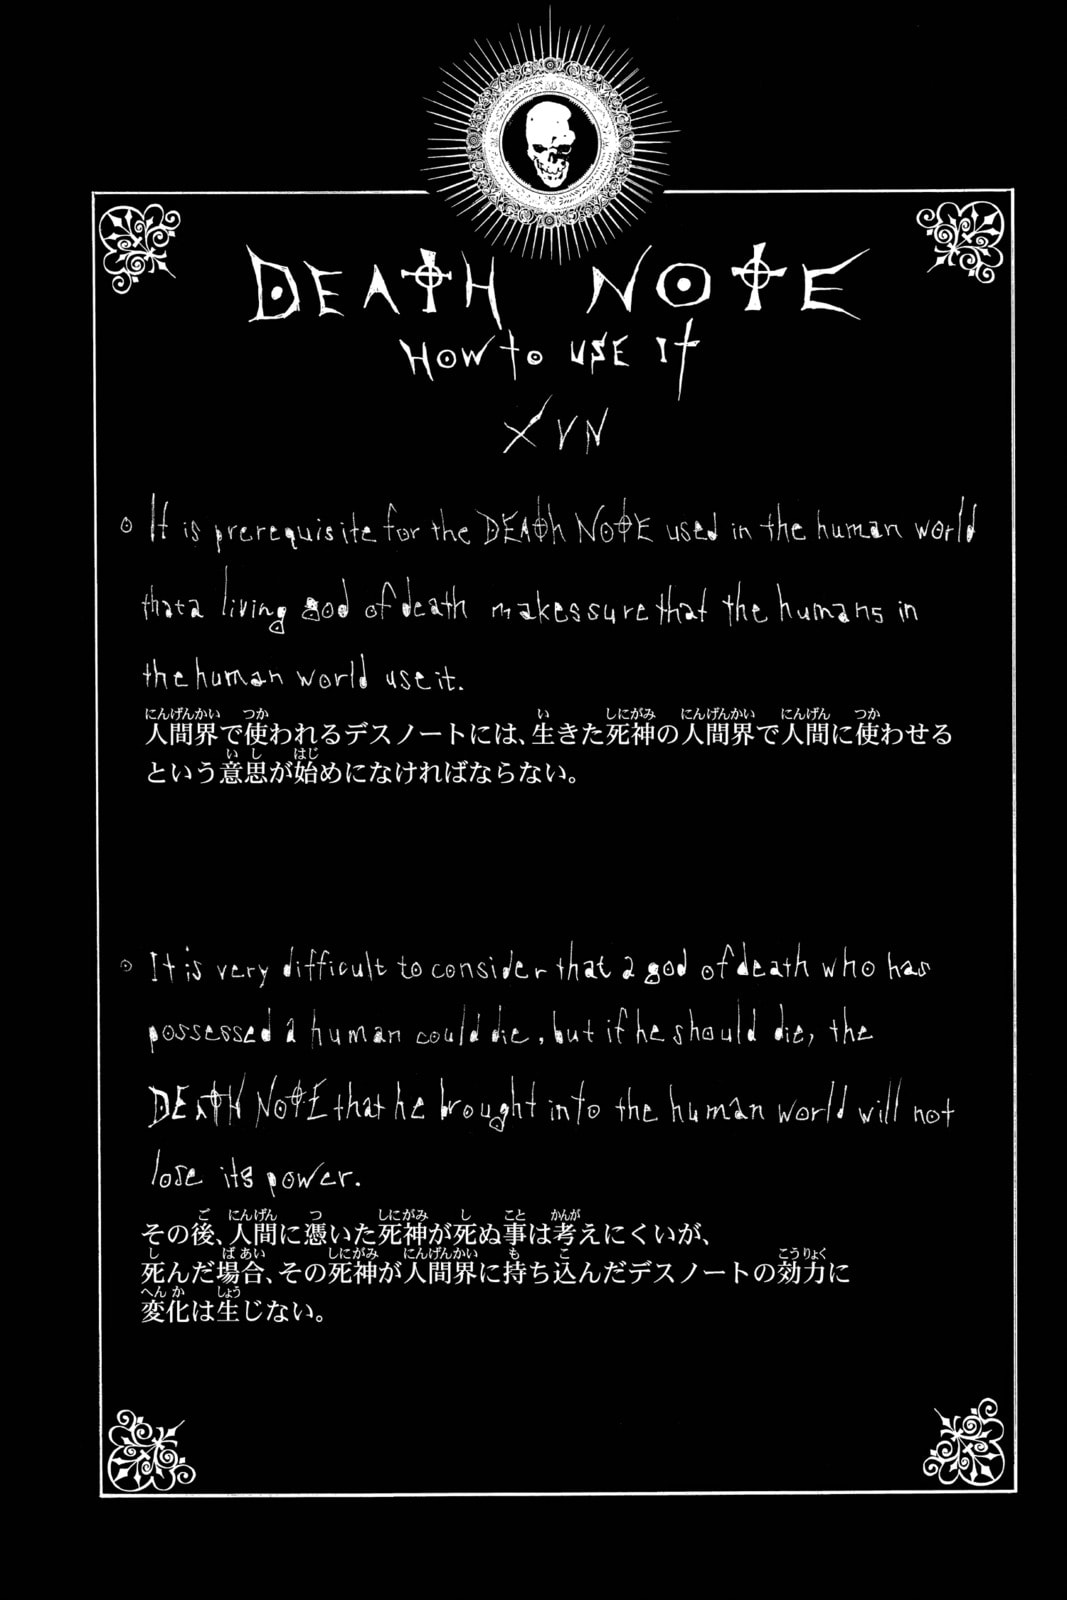 DEATH NOTE
HOW to USE It
XVII
It is prerequisite for the DEATH NOTE used in the human world
that a living god of death makes sure that the humans in
the human world use it.
人間界で使われるデスノートには、生きた死神の人間界で人間に使わせる
という意思が始めになければならない。
It is very difficult to consider that a god of death who has
possessed a human could die, but if he should die, the
DEATH NOTE that he brought into the human world will not
lose its power.
その後、人間に憑いた死神が死ぬ事は考えにくいが、
死んだ場合、その死神が人間界に持ち込んだデスノートの効力に
変化は生じない。